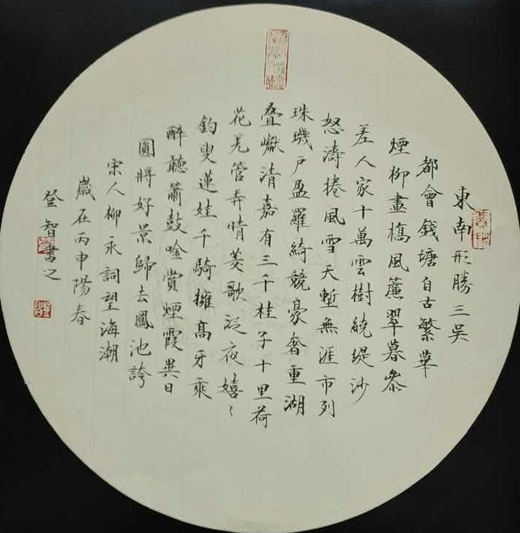 東南形勝三吳
都會錢塘自古繁華
煙柳畫橋風簾翠暮參
差人家十萬雲樹繞堤沙
怒濤捲風雪天塹無涯市列
珠璣戶盈羅綺競豪奢重湖
疊巘清嘉有三千桂子十里荷
花羌管弄情菱歌泛夜嬉〻
釣叟蓮娃千騎擁高牙乘
醉聽簫鼓唫賞煙霞異日
圖將好景歸去鳳池誇
宋人柳永詞望海潮
歲在丙申陽春
登智書之